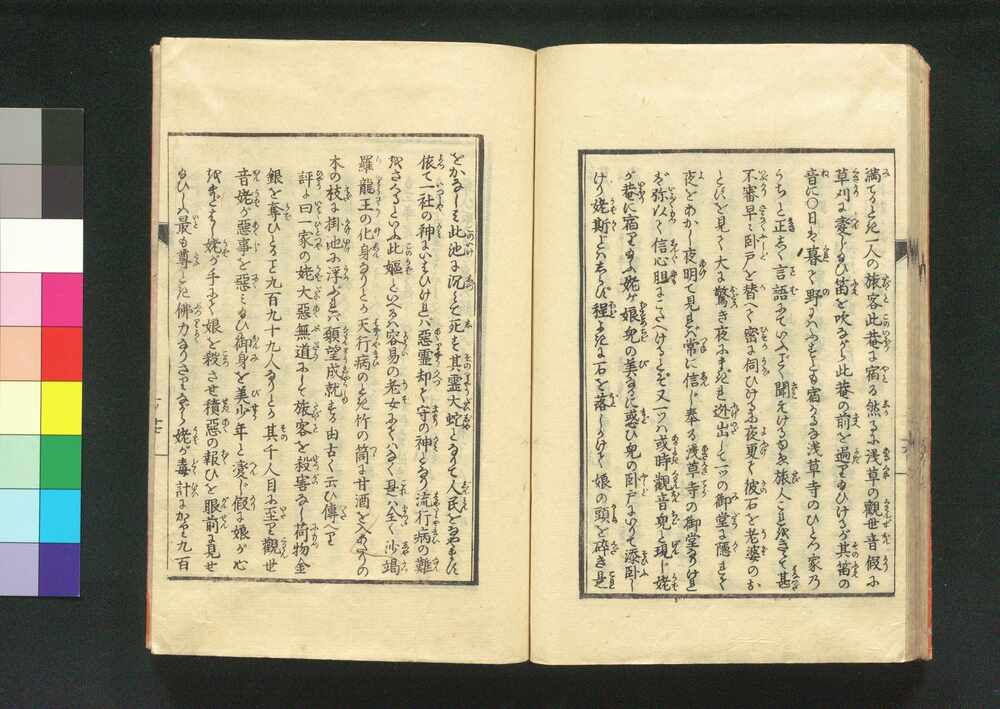 満てるとき一人の旅客此菴に宿る然るに浅草の觀世音假に
草刈に変じ給ひ笛を吹ながら此菴の前を過り給ひけるが其笛の
音に〇日は暮て野にはふすとも宿るな浅草寺のひとつ家の
うちと正しく言語にていふごとく聞えける故旅人これをきゝて甚
不審早々臥戸を替へて密に伺ひけるに夜更て彼石を老婆のお
とせしを見て大に驚き夜にまぎれ迯出して一つの御堂に隠れて
夜をあかし夜明て見れば常に信じ奉る浅草寺の御堂なりければ
弥以て信心胆にこたへけるとぞ又一つハ或時觀音兒と現じ姥
が菴に宿り給ふ姥が娘兒の美なるに惑ひ兒の臥戸にいりて添臥し
けり姥斯とはしらず程よきに石を落しければ娘の頭を砕き是
をかなしみ此池に沉て死す其霊大蛇となりて人民をなやませし
依て一社の神にいはひければ惡霊却て守の神となり流行病の難
をさくるといふ此嫗といへるハ容易の老女にてハなく是ハ全く沙竭
羅龍王の化身なりとぞ天行病のとき竹の筒に甘酒を入あたりの
木の枝に掛池に浮ぶれば願望成就する由古く云ひ傳へり
評に曰一家の姥大惡無道にして旅客を殺害なし荷物金
銀を奪ひとること九百九十九人なりとぞ其千人目に至り觀世
音姥が惡事を惡み給ひ御身を美少年と変じ假に娘が心
をまどまし姥が手にて娘を殺させ積惡の報ひを眼前に見せ
給ひしハ最も尊とき佛力なりされど姥が毒計にかゝり九百